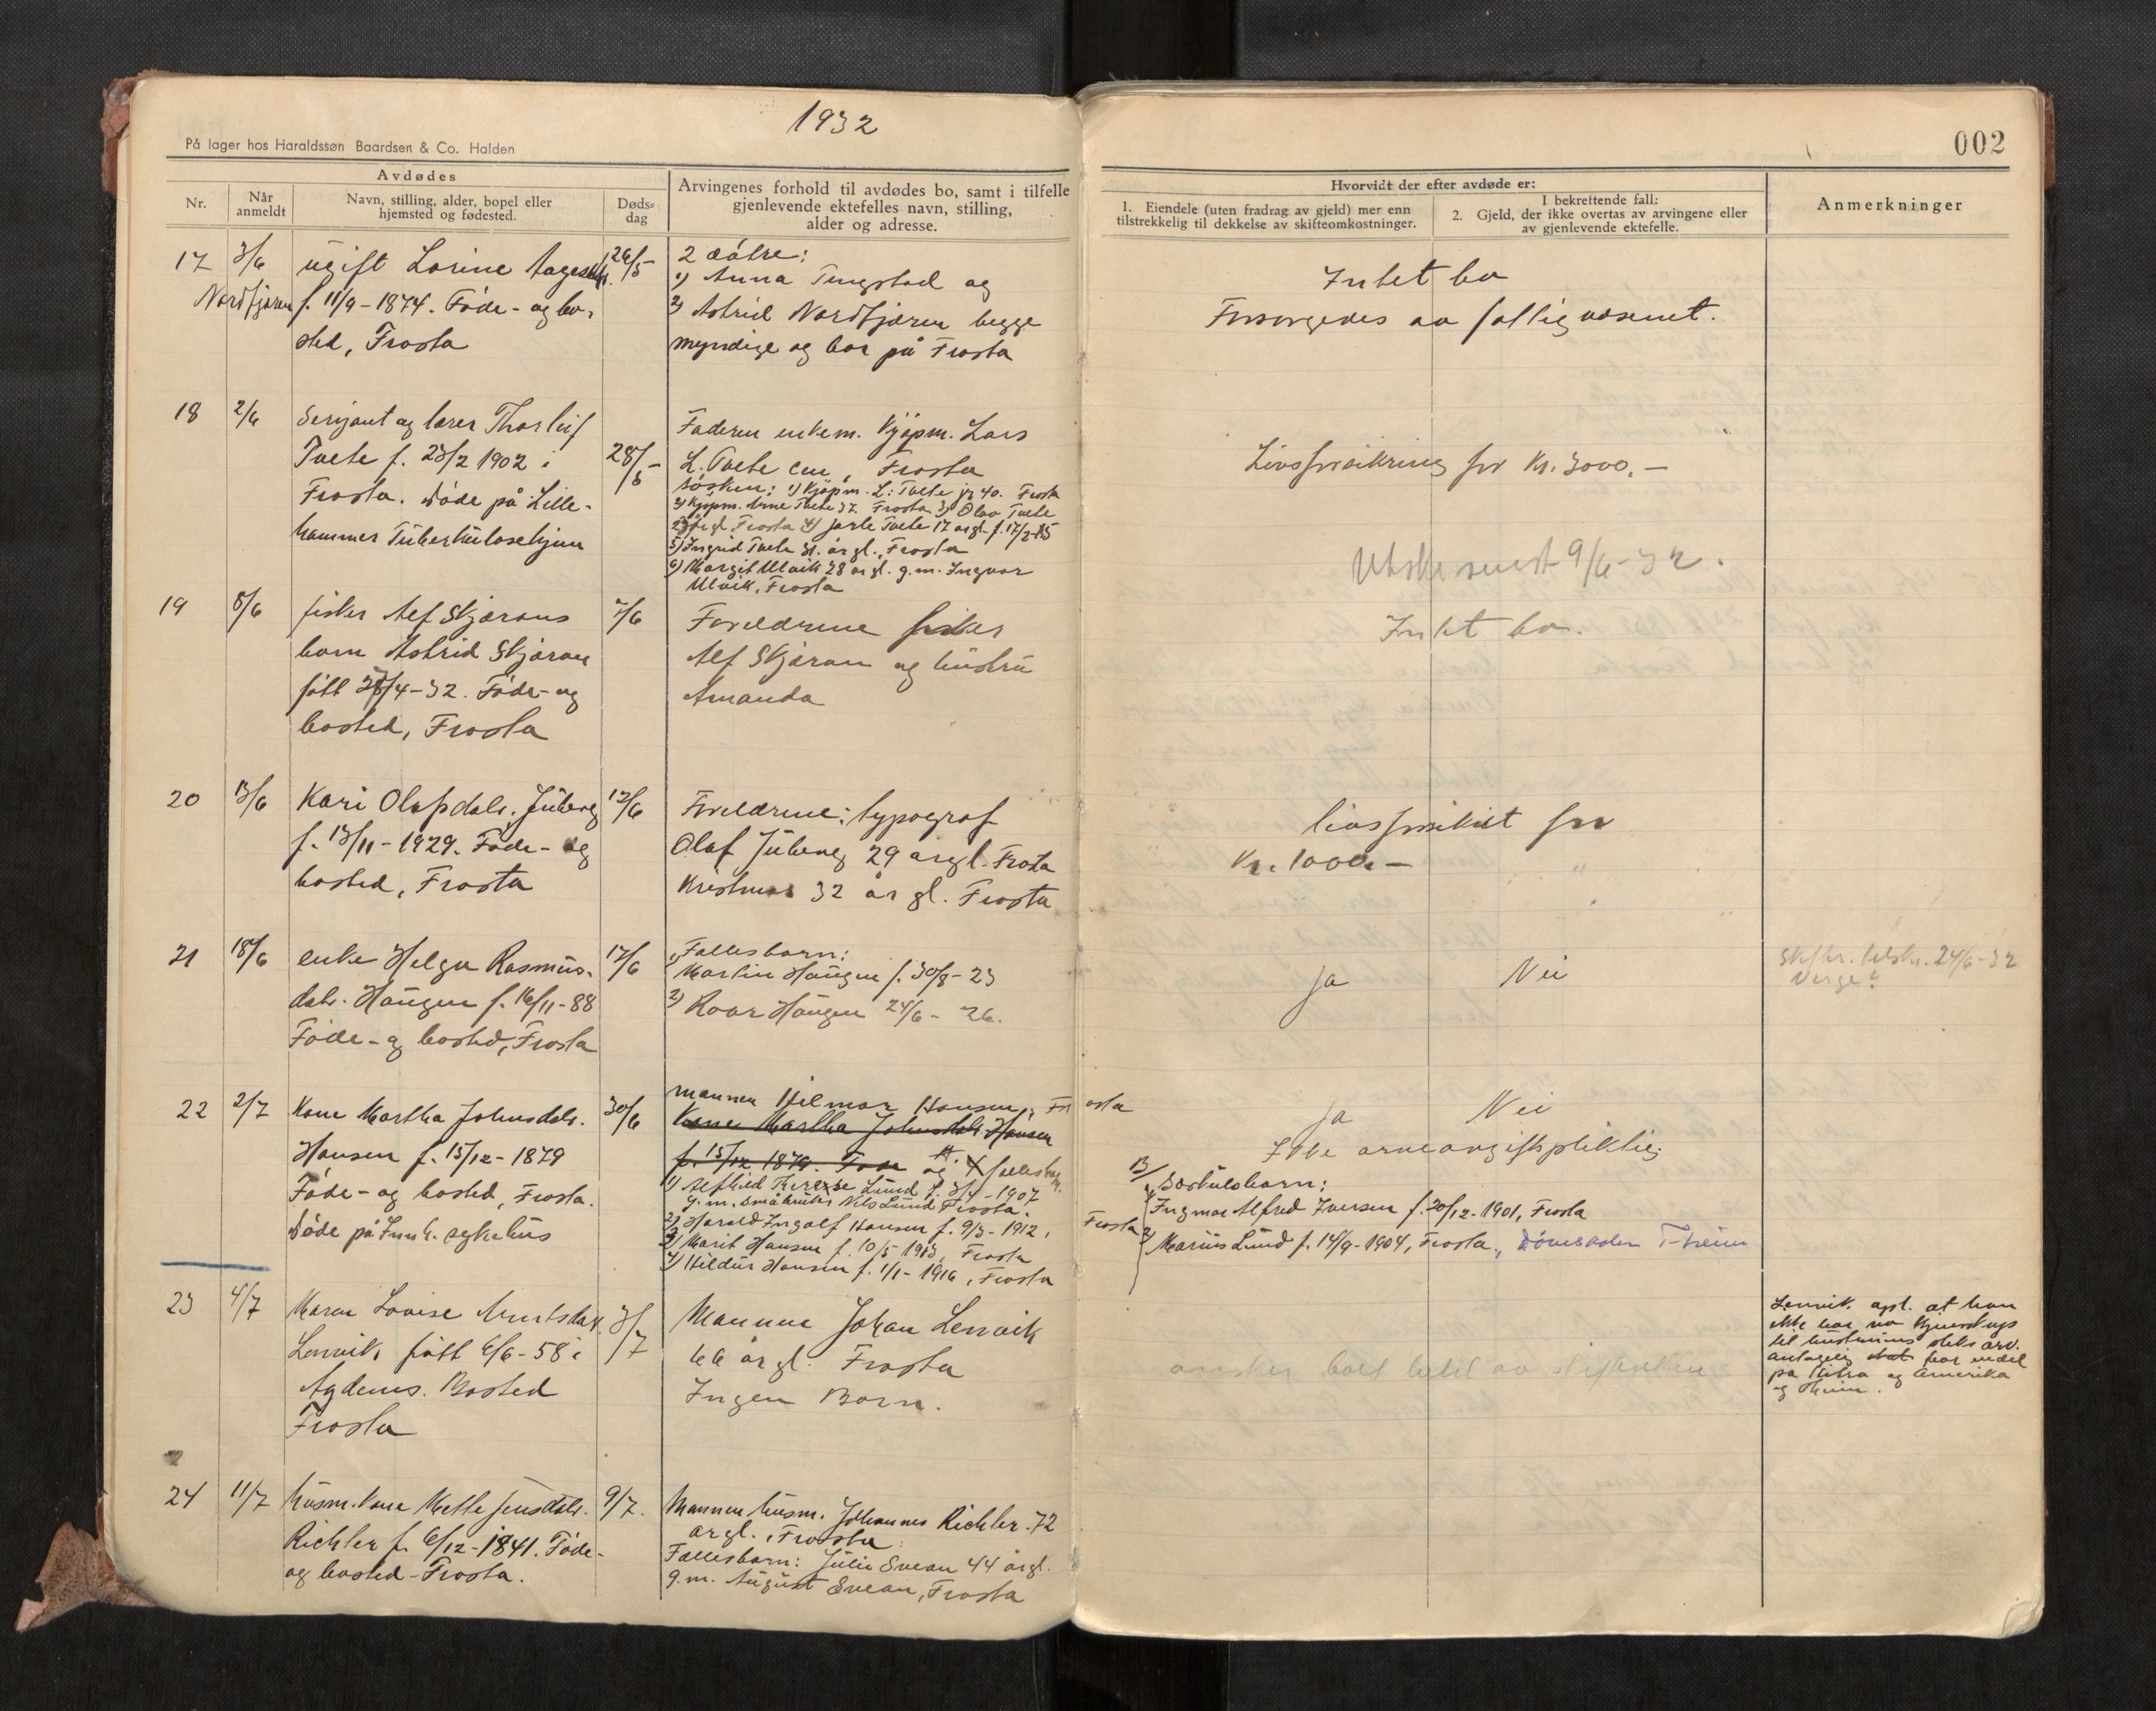 1932
002
På lager hos Haraldssøn Baardsen & Co. Halden
Avdødes
Nr.
Når anmeldt
Navn, stilling, alder, bopel eller
hjemsted og fødested.
Døds-
dag
Arvingenes forhold til avdødes bo, samt i tilfelle
gjenlevende ektefelles navn, stilling,
alder og adresse.
Hvorvidt der efter avdøde er:
1. Eiendele (uten fradrag av gjeld) mer enn
tilstrekkelig til dekkelse av skifteomkostninger.
I bekreftende fall:
2. Gjeld, der ikke overtas av arvingene eller
av gjenlevende ektefelle.
Anmerkninger
17 3/6 ugift Lorine
Nordfjæren f. 11/9-1874. Føde- og bo-
sted, Frosta
26/5
2 døtre:
1) Anna Tingstad og
2) Astrid Nordfjæren begge
myndige og bor på Frosta
Intet bo
Forsørgedes av fattigvæsenet.
18 2/6 Serjant og lærer Thorleif
Tvete f. 23/2 1902 i
Frosta. Døde på Lille-
hammer Tuberkulosehjem
28/5
Faderen enkem. kjøpm. Lars
L. Tvete sen., Frosta
Søsken: 1) Kjøpm. L. Tvete jr 40. Frosta
2) Kjøpm. Arne Tvete 37 Frosta 3) Olav Tvete
23 år gl. Frosta 4) Jarle Tvete 17 år gl. f. 17/2-15
5) Ingrid Tvete 31 år gl., Frosta
6) Margit Ulvik 28 år gl. g.m. Ingvar
Ulvik, Frosta
Livsforsikring for Kr. 3000.-
Utskr. sendt 9/6-32.
19 8/6 fisker Alf Skjærans
barn Astrid Skjæran
født 27/4-32. Føde- og
bosted, Frosta
7/6
Foreldrene fisker
Alf Skjæran og hustru
Amanda
Intet bo.
20 13/6 Kari Olafsdatr. Juberg
f. 13/11-1929. Føde- og
bosted, Frosta
12/6
Foreldrene: typograf
Olaf Juberg 29 år gl. Frosta
32 år gl. Frosta
livsforsikret for
Kr. 1000.-
21 18/6 enke Helga Rasmus-
datr. Haugen f. 16/11-88
Føde- og bosted, Frosta
17/6
Fellesbarn:
1) Martin Haugen f. 30/8-23
2) Roar Haugen 24/6-26.
ja
Nei
24/6-32
Verge?
22 2/7 Kone Martha Johnsdatr.
Hansen f. 15/12-1879
Føde- og bosted, Frosta.
Døde på Innh. sykehus
30/6
mannen Hilmar Hansen, Frosta
Kone Martha Johnsdatr. Hansen
f. 15/12 1879. Føde og A. 4 fellesbarn.
1) Alfhild Therese Lund f. 3/4-1907
g.m. småbruker Nils Lund Frosta.
2) Harald Ingolf Hansen f. 9/3-1912, Frosta
3) Marit Hansen f. 10/5 1913, Frosta
4) Hildur Hansen f. 1/1-1916, Frosta
ja
Nei
Ikke arveavgiftspliktig
B/ Særkulsbarn:
1) Ingmar Alfred Iversen f. 20/12-1901, Frosta
2) Marius Lund f. 14/9-1904, Frosta, Døveskolen T-heim
23 4/7 Maren Lovise Arntsdatr.
Lenvik, født 6/6-58 i
Agdenes. Bosted
Frosta
3/7
Mannen Johan Lenvik
66 år gl. Frosta
Ingen Barn.
ønsker boet beh. av skifteretten
Lenvik opl. at han
ikke har no kjennskap
til hustruens slekt arv.
antagelig har endel
på Hitra og Amerika
og Theim.
24 11/7 Husm. kone Mette Jensdatr.
Richter f. 6/12-1841. Føde-
og bosted-Frosta.
9/7.
Mannen husm. Johannes Richter. 72
år gl., Frosta.
Fællesbarn: Julie Svean 44 år gl.
g.m. August Svean, Frosta